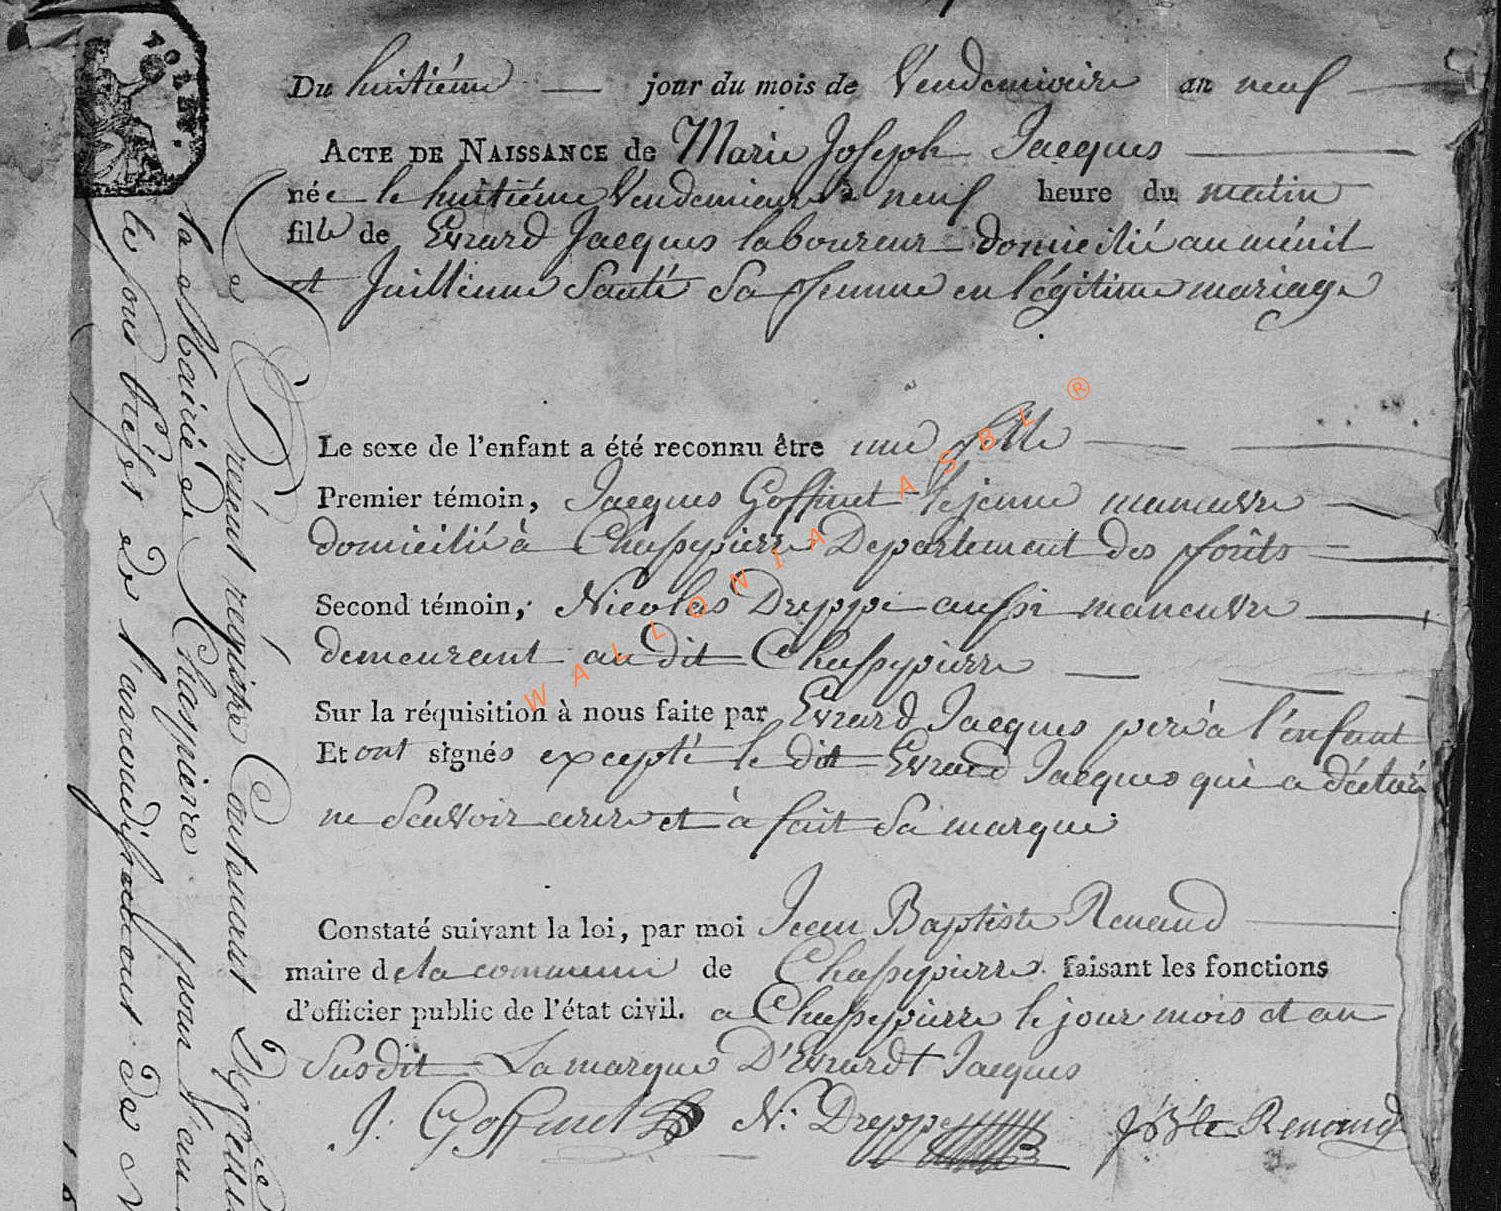 Du huitiéme jour du mois de Vendemiaire an neuf
ACTE DE NAISSANCE de Marie Joseph Jacques
née le huitiéme Vendemiaire à neuf heure du matin
fille de Evrard Jacques laboureur domicilié au ménil
et Juillienne Santé Sa femme en légitime mariage
Le sexe de l'enfant a été reconnu être une fille
Premier témoin, Jacques Goffinet le jeune maneuvre
domicilié à Chassepierre Departement des forêts
Second témoin, Nicolas Dreppe aussi maneuvre
demeurant au dit Chassepierre
Sur la réquisition à nous faite par Evrard Jacques per à l'énfant
Et ont signés excepté le dit Evrard Jacques qui a déclaré
ne Scavoir ecrire et à fait Sa marque
Constaté suivant la loi, par moi Jean Baptiste Renaud
maire de la commune de Chassepierre faisant les fonctions
d'officier public de l'état civil. a Chassepierre le jour mois et an
Susdit La marque D'Evrard + Jacques
J: Goffinet N: Dreppe J B te Renaud
Le Présent régistre Contenant
la Mairie de Chaspierre pour l'an
le sous Préfet de l'arrondissement de
WALLONIA ASBL ®